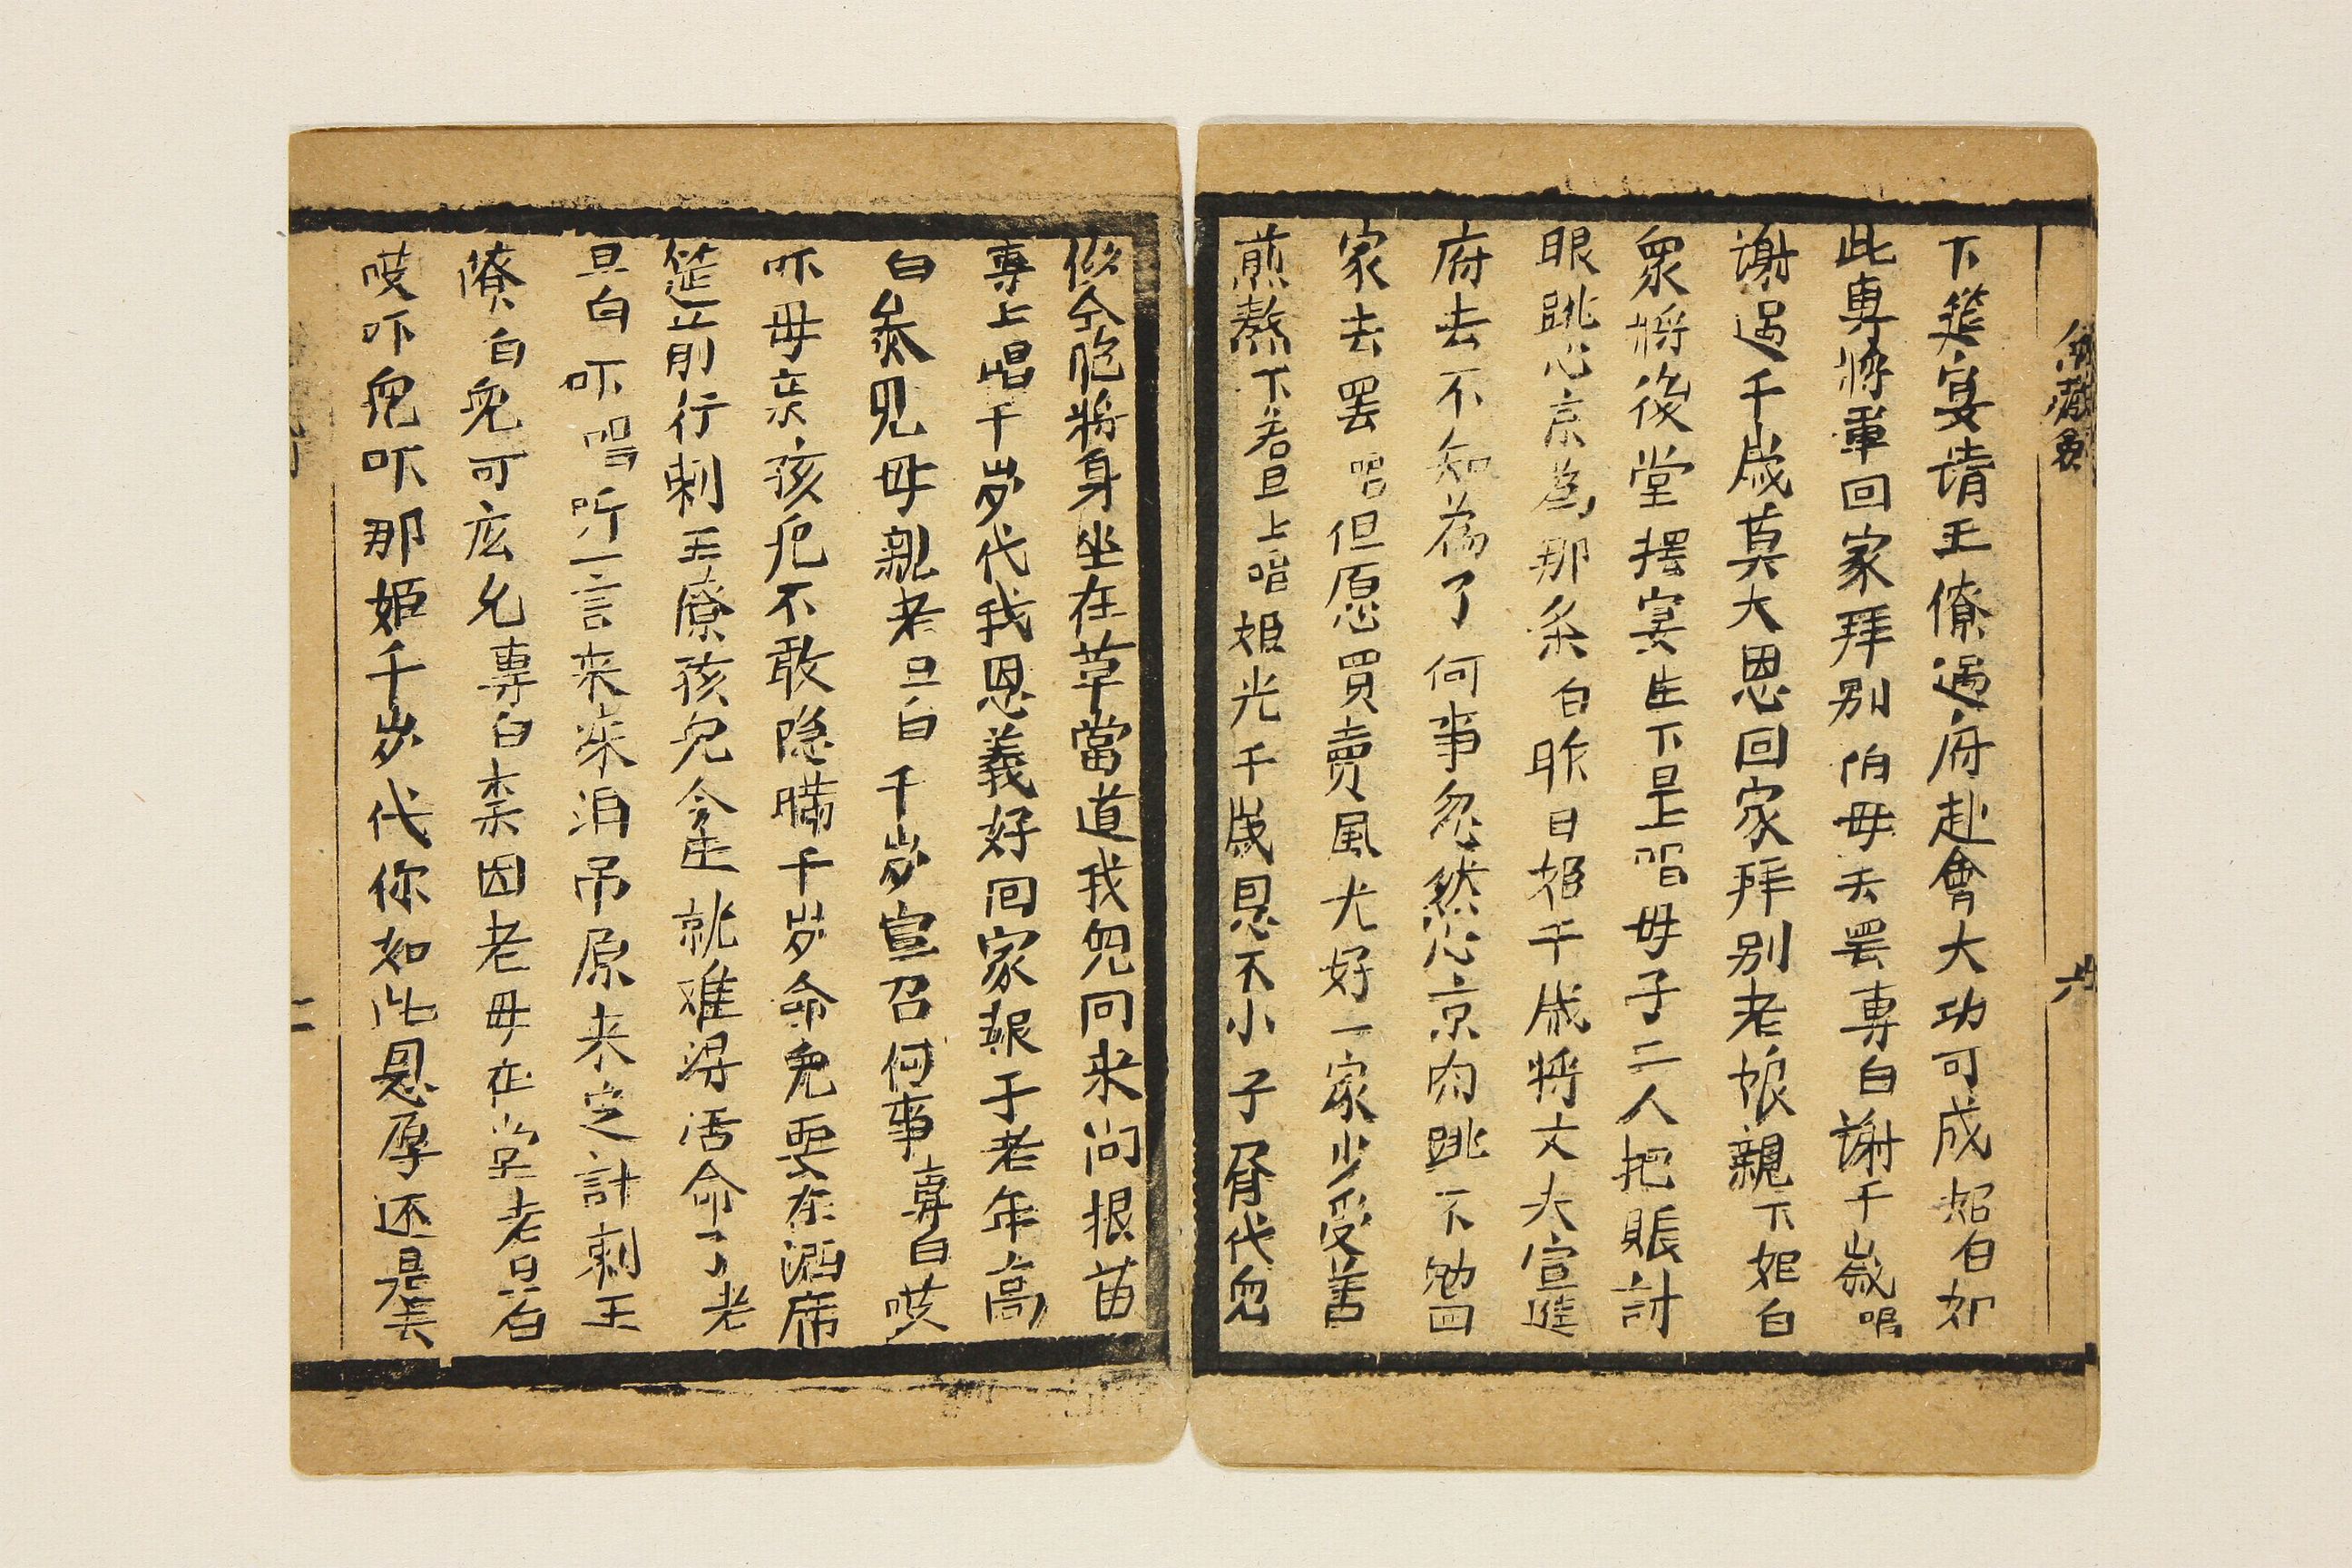 魚藏劍
下筵宴請王僚過府赴會大功可成姬白如
此專將軍回家拜別伯母去罷專白謝千歲唱
謝過千歲莫大恩回家拜别老娘親下姬白
衆將後堂摆宴生下旦上唱母子二人把賬討
眼跳心京為那条白昨日姬千歲將丈夫宣進
府去不知為了何事忽然心京肉跳不免回
家去罢唱但愿買賣風光好一家少受善
煎熬下老旦上唱姬光千歲恩不小子胥代兒
似仝胞將身坐在草當道我兒回来问根苗
專上唱千岁代我恩義好回家報于老年高
白叅見母親老旦白千岁宣召何事專白哎
吓母亲孩兒不敢隐瞞千岁命兒要在酒席
筵前行刺王僚孩兒今去就难淂活命了老
旦白吓唱听一言来来泪吊原来定計刺王
僚白兒可应允專白禀因老母在堂老旦白
哎吓兒吓那姬千岁代你如此恩厚还是